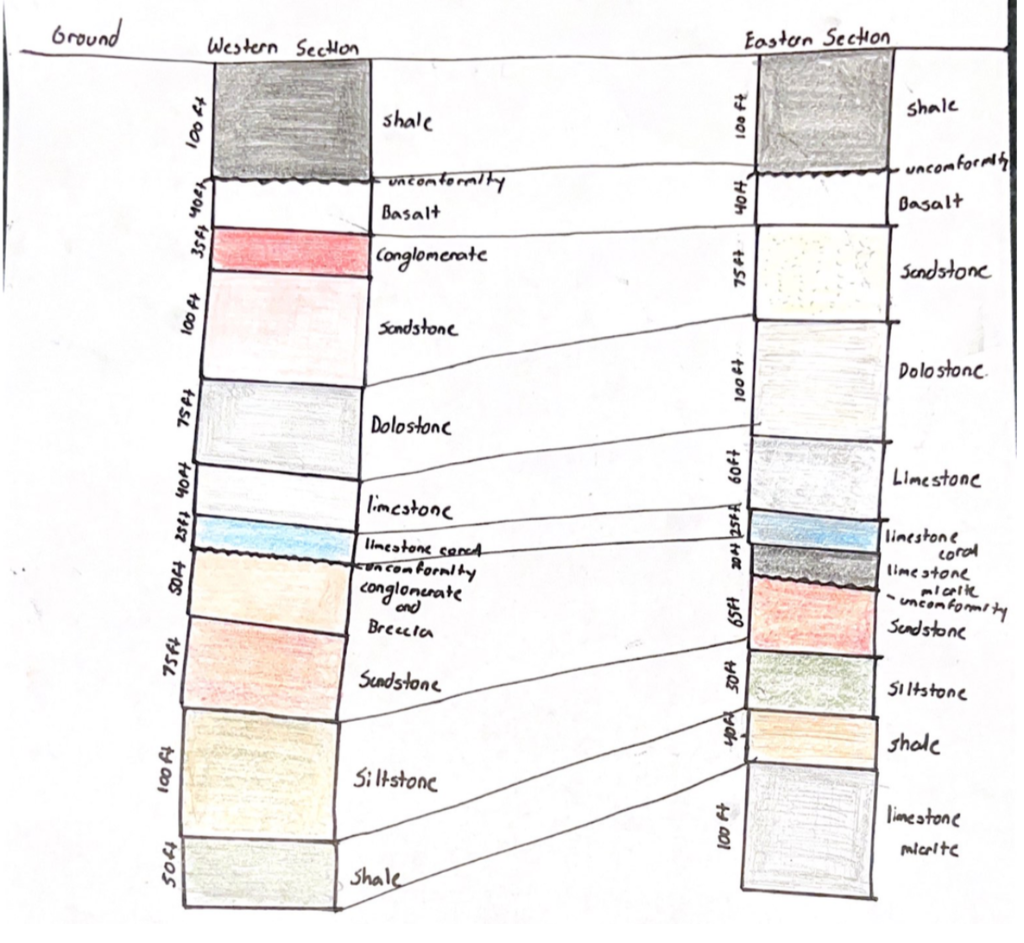 Ground
Western Section
100 ft
shale
uncomformity
40ft
Basalt
35ft
Conglomerate
100 ft
Sandstone
75ft
Dolostone
40ft
limestone
25ft
limestone coral
uncomformity
50ft
conglomerate
and
Breccia
75ft
Sandstone
100ft
Siltstone
50ft
Shale
Eastern Section
100 ft
Shale
uncomformity
40ft
Basalt
75 ft
Sandstone
100 ft
Dolostone.
60ft
Limestone
25ft
limestone
coral
limestone
micrite
uncomformity
65ft
Sandstone
Siltstone
40ft
shale
100 ft
limestone
micrite